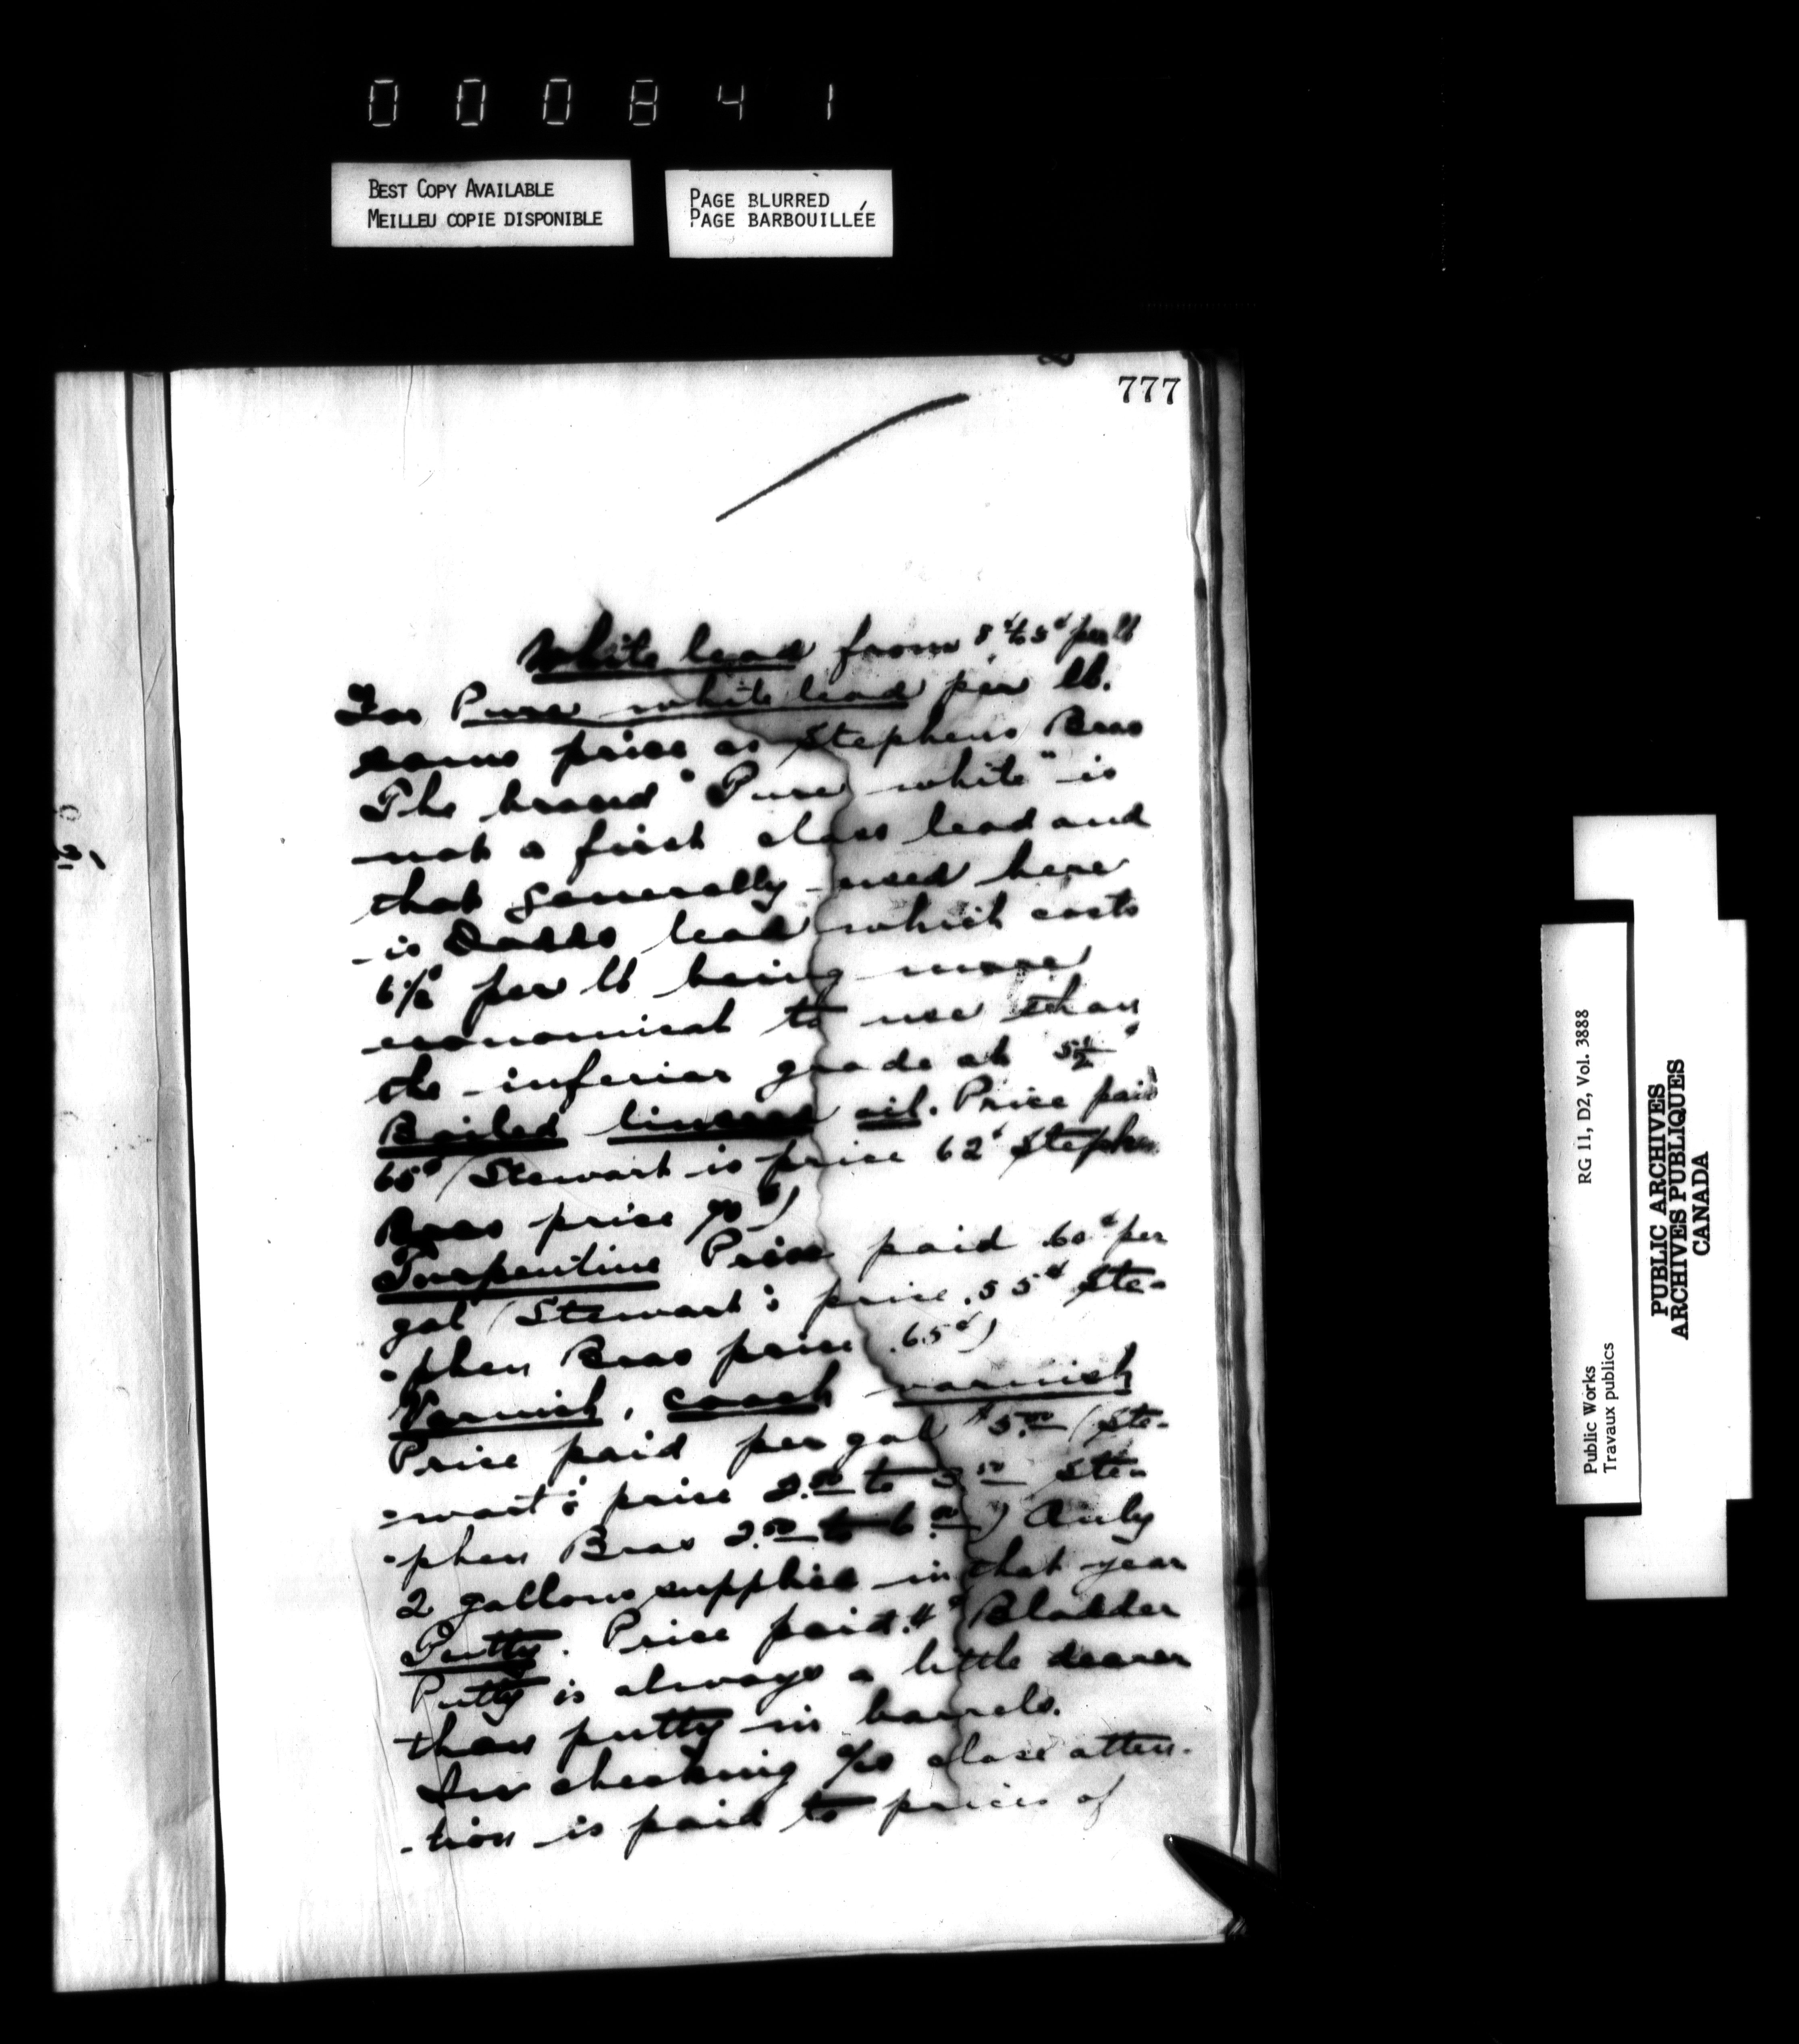 000841
BEST COPY AVAILABLE
MEILLEU COPIE DISPONIBLE
PAGE BLURRED
PAGE BARBOUILLÉE
777
White lead from per lb
For Pure white lead per lb.
same price as Stephens Bros
The brand "Pure white" is
not a first class lead and
that generally used here
is Dodds lead which costs
6½ per lb being more
economical to use than
the inferior grade at 5½
Boiled linseed oil. Price paid
65¢ (Stewart is price 62¢ Stephen
Bros price 70¢)
Turpentine Price paid .60¢ per
gal (Stewart's price .55¢ Ste-
-phen Bros price .65¢)
Varnish, coach varnish
Price paid per gal $5.00 (Ste-
-wart's price 2.00 to 3.50 Ste-
-phen Bros 2.50 to 6.00) Only
2 gallons supplied in that year
Putty. Price paid .4¢ Bladder
Putty is always a little dearer
than putty in barrels.
In checking a/cs close atten-
-tion is paid to prices of
Public Works
Travaux publics
RG 11, D2, Vol. 3888
PUBLIC ARCHIVES
ARCHIVES PUBLIQUES
CANADA